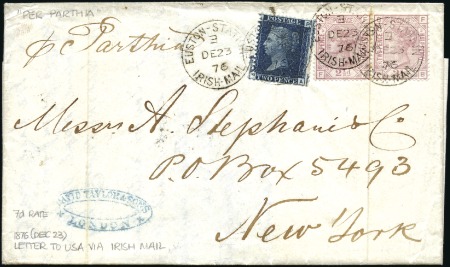 "PER PARTHIA"
p Parthia
EUSTON-STATION
3
DE23
76
IRISH-MAIL
POSTAGE
TWO PENCE
EUSTON-STATION
3
DE23
76
IRISH-MAIL
76
IRISH-MAIL
Messrs A. Stephani & Co
P.O. Box 5493
New York
DAVID TAYLOR & SONS
LONDON
7d RATE
1876 (DEC 23)
LETTER TO USA VIA IRISH MAIL